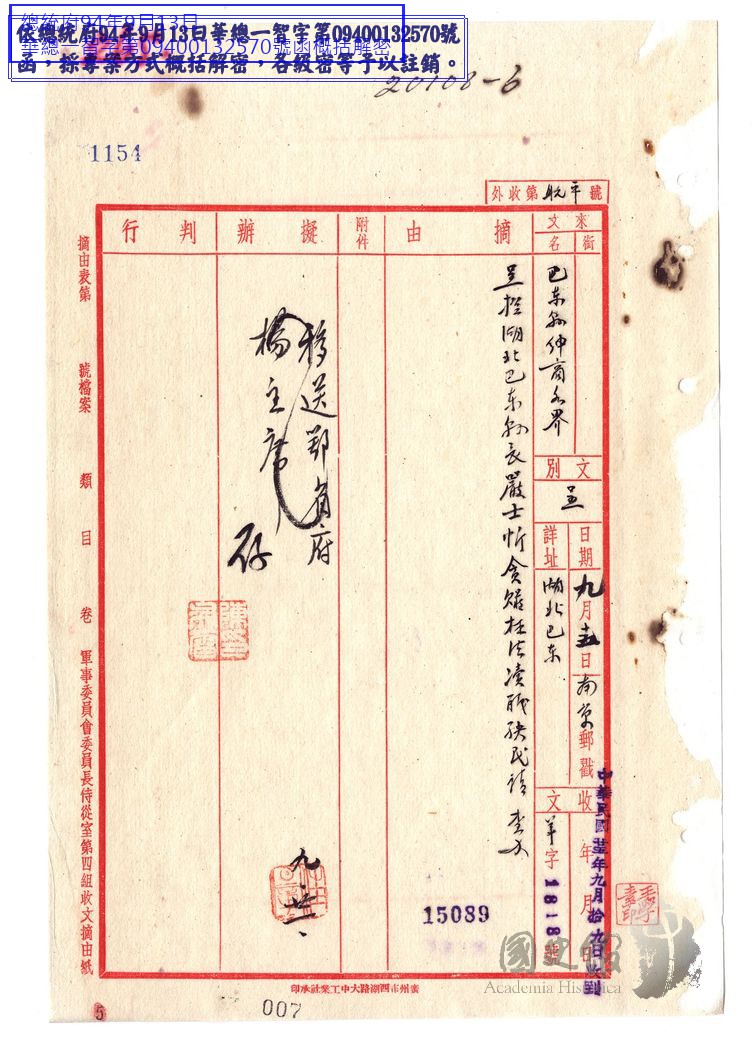 總統府94年9月13日
華總一智字第09400132570號函概括解密
依總統府94年9月13日華總一智字第09400132570號
函，採專案方式概括解密，各級密等予以註銷。
20108-6
1154
外收第 航平 號
來文
銜名
巴東縣仲商各界
文別
呈
日期
九月 日南京郵戳
詳址
湖北巴東
收文
年 月 日
羊字1818號
中華民國 年九月拾九日收到
摘由
呈控湖北巴東縣長嚴士忻貪贓枉法瀆職殃民請 查办
附件
擬辦
移送鄂省府
楊主席
存
判行
15089
摘由表第 號檔案 類 目 卷 軍事委員會委員長侍從室第四組收文摘由紙
西湖路大中工業社承印
國史館
Academia Historica
007
5